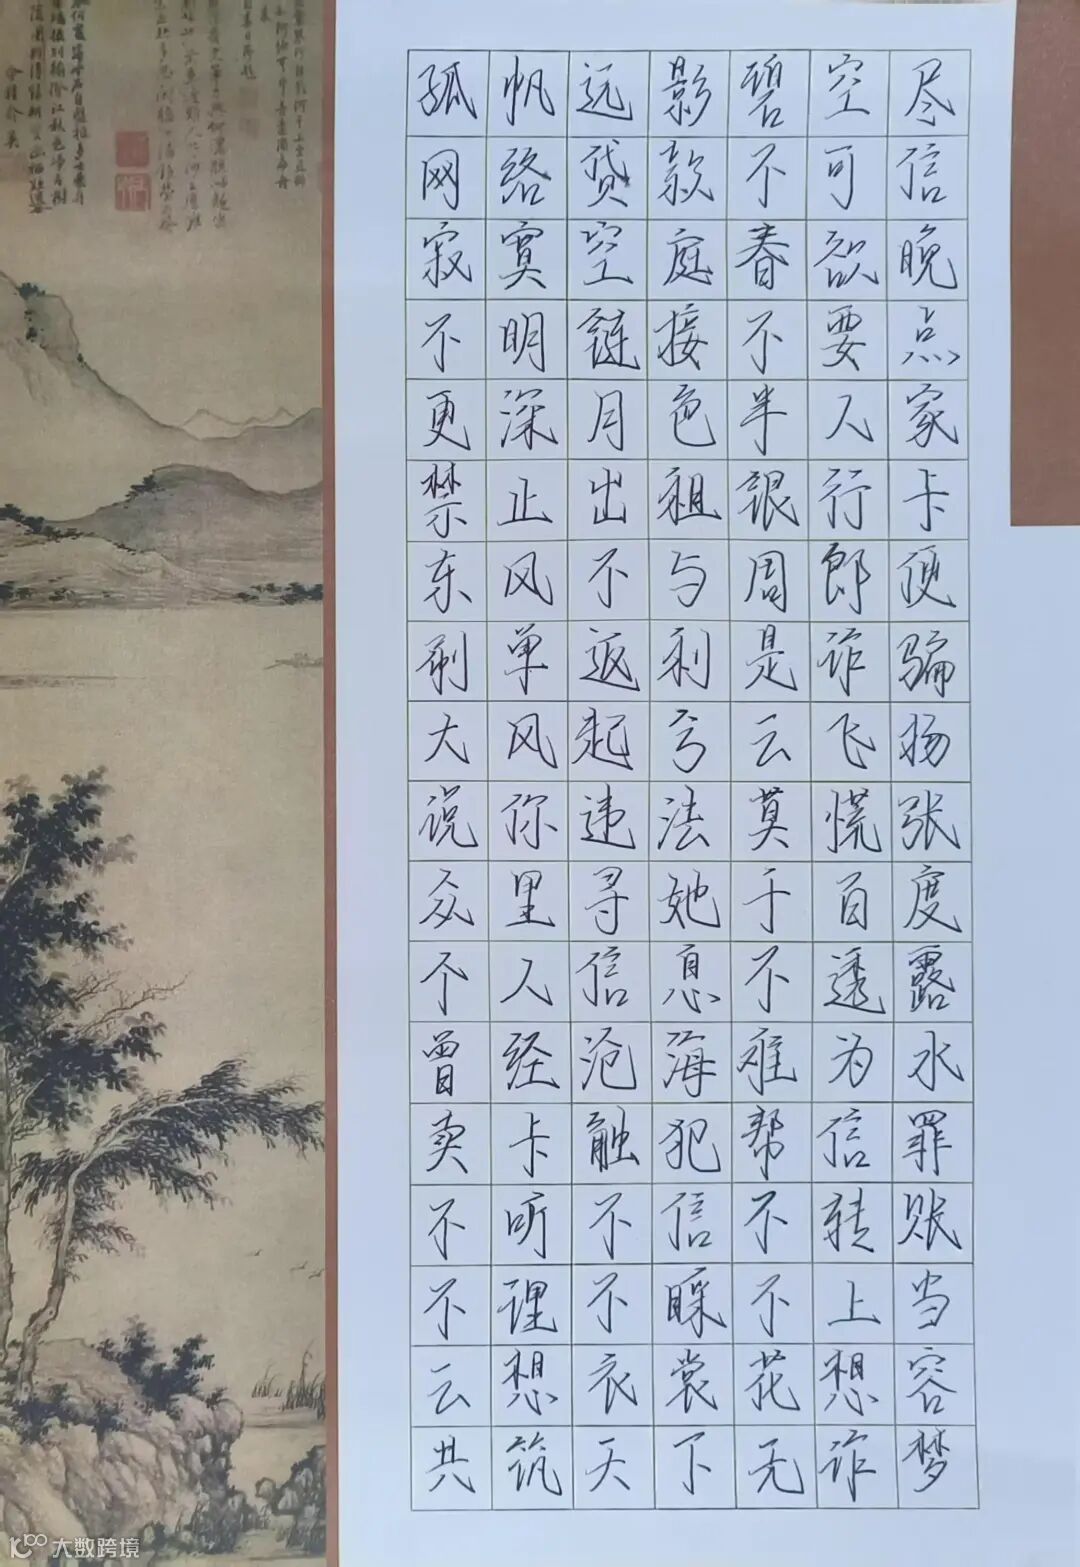 孤帆远影碧空尽
网络贷款不可信
寂寞空庭春欲晚
不明链接不要点
更深月色半人家
禁止出租银行卡
东风不与周郎便
刷单返利是诈骗
大风起兮云飞扬
说你违法莫慌张
众里寻她千百度
个人信息不透露
曾经沧海难为水
卖卡触犯帮信罪
不听不信不转账
不理不睬不上当
云想衣裳花想容
共筑天下无诈梦
大数跨境